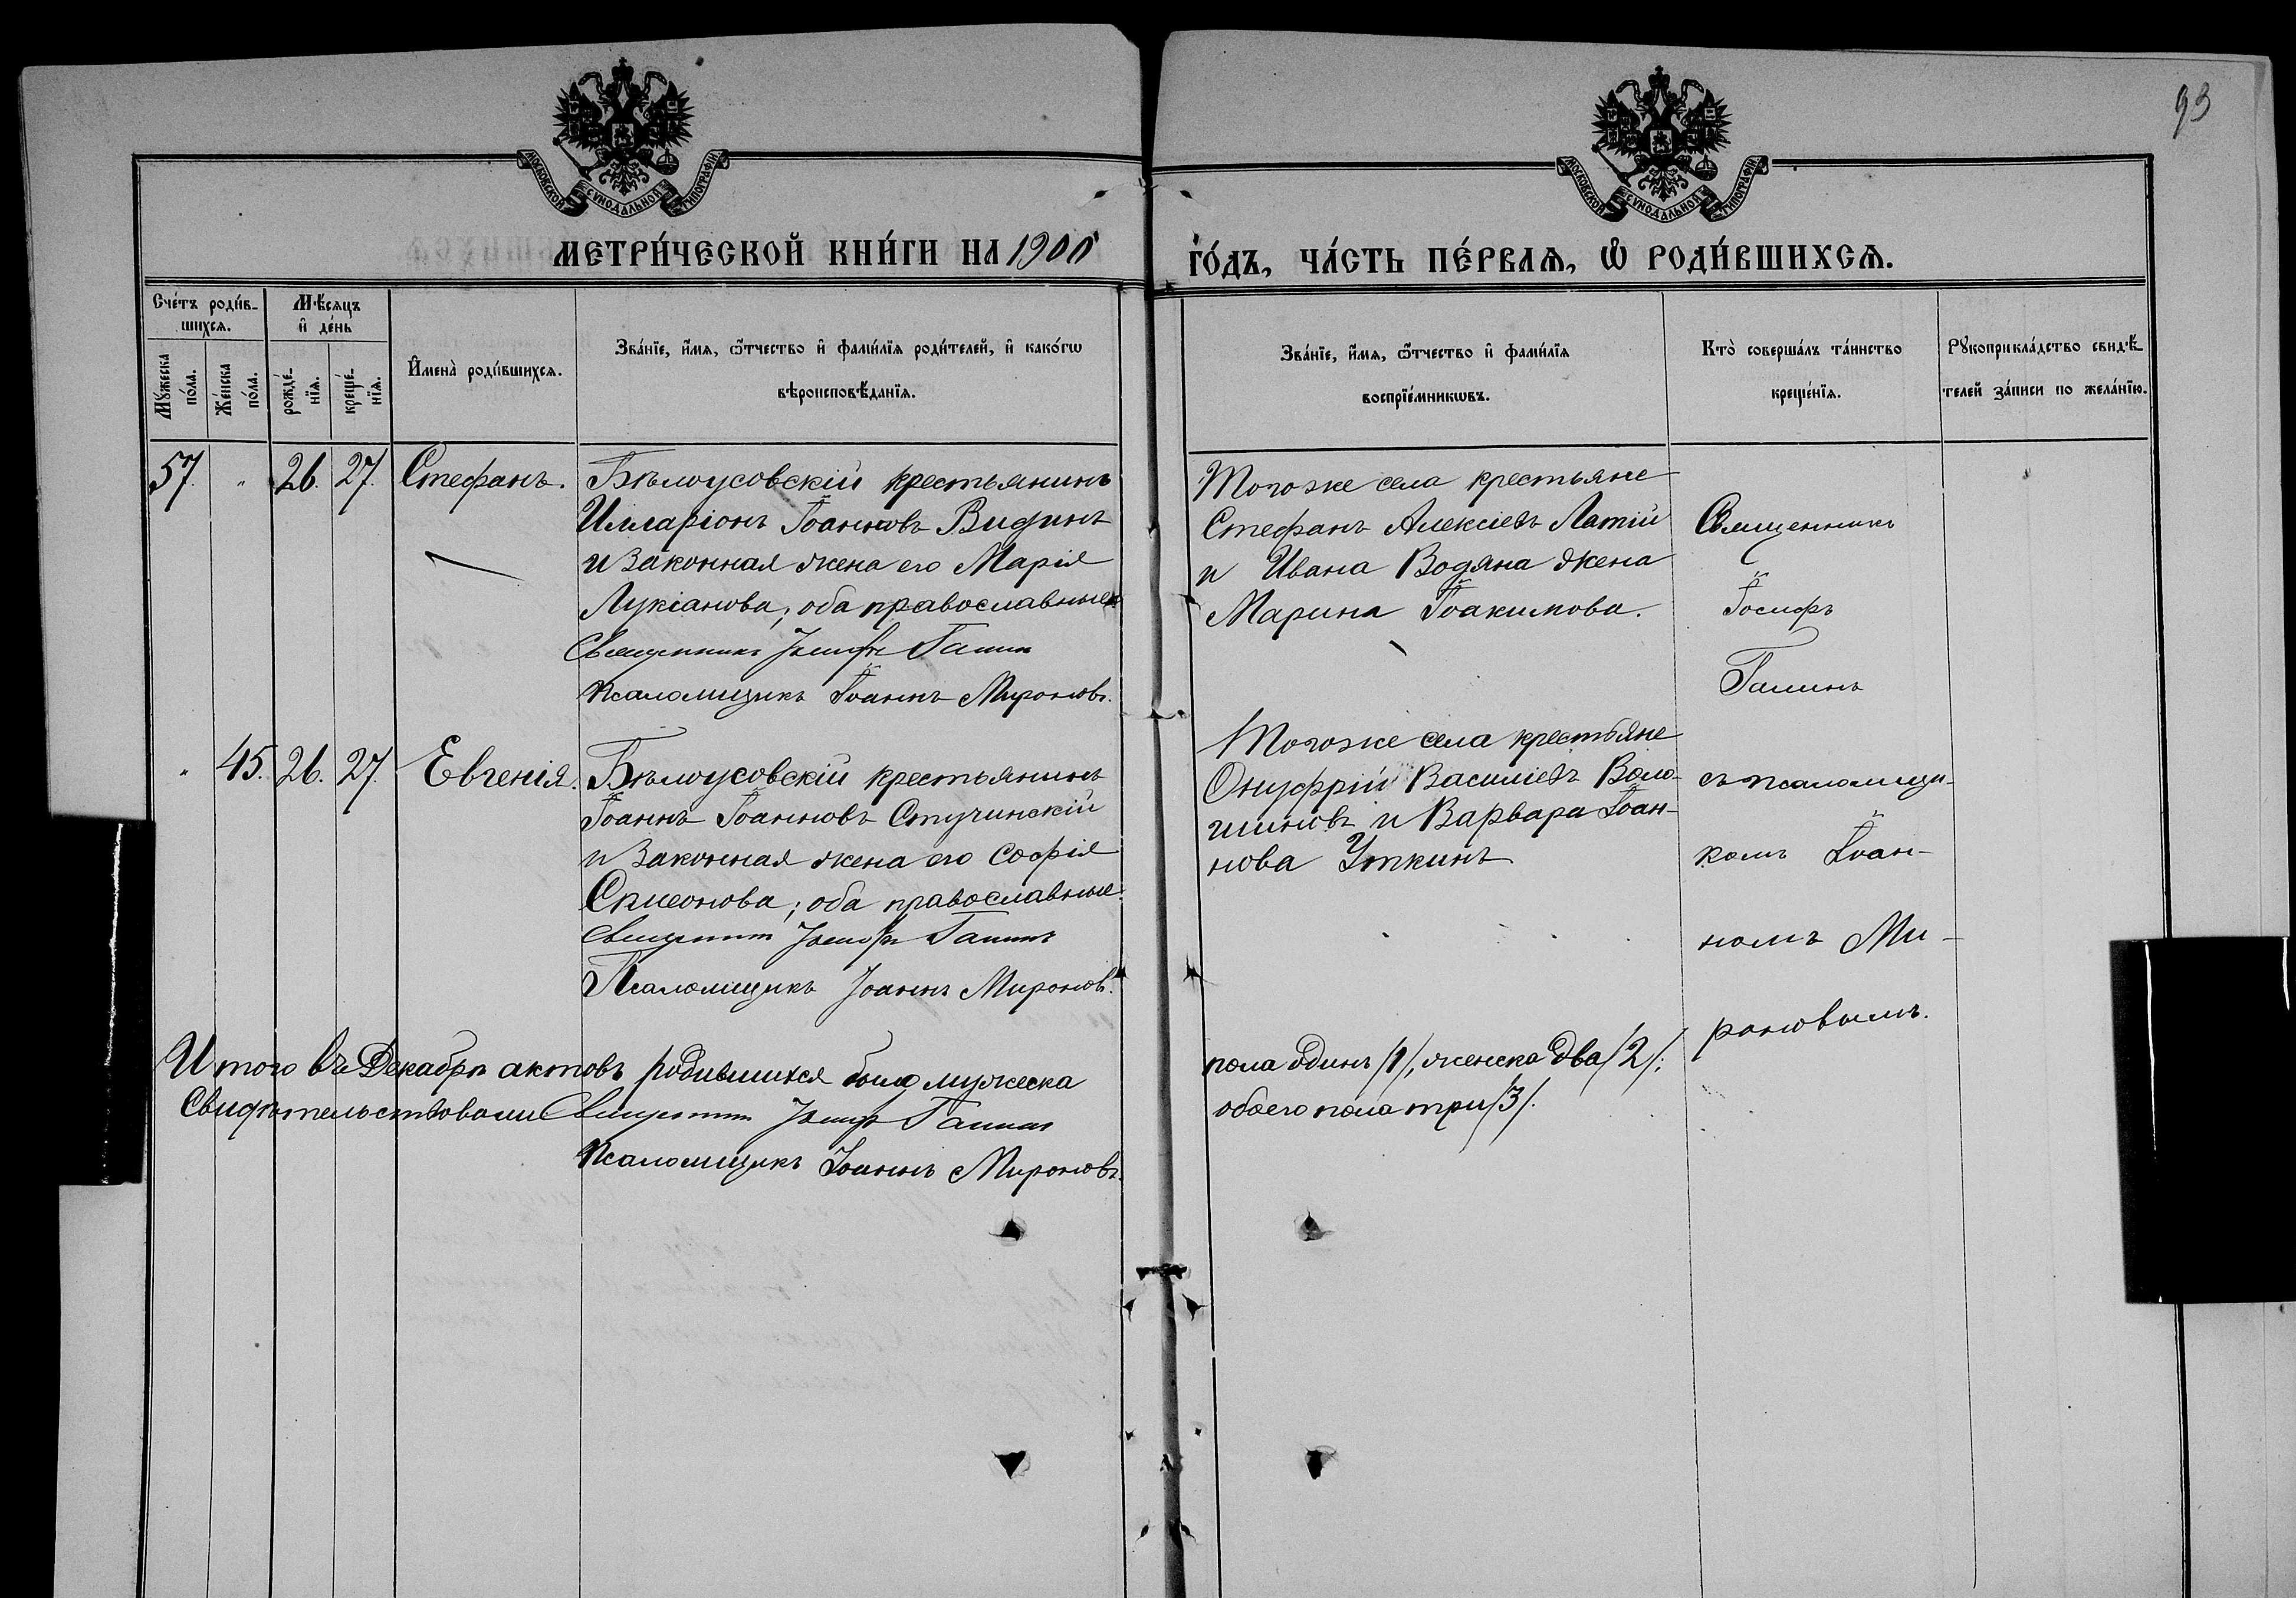 93
МОСКОВСКОЙ СѴНОДАЛЬНОЙ ТИПОГРАФІИ
МОСКОВСКОЙ СѴНОДАЛЬНОЙ ТИПОГРАФІИ
МЕТРИ́ЧЕСКОЙ КНИ́ГИ НА 1900
ГО́ДЪ, ЧА́СТЬ ПЕ́РВАѦ, Ѡ҆ РОДИ́ВШИХСѦ.
Сче́тъ роди́в-
шихсѧ.
Мꙋ́жеска
по́ла.
Же́нска
по́ла.
Мѣ́сѧцъ
и҆ де́нь
рожде́-
нїѧ.
креще́-
нїѧ.
И҆мена̀ роди́вшихсѧ.
Зва́нїе, и҆́мѧ, ѻ҆́тчество и҆ фами́лїѧ роди́телей, и҆ како́гѡ
вѣроисповѣ́данїѧ.
Зва́нїе, и҆́мѧ, ѻ҆́тчество и҆ фами́лїѧ
воспрїе́мникѡвъ.
Кто̀ соверша́лъ та́инство
креще́нїѧ.
Рꙋкоприкла́дство свидѣ́-
телей за́писи по жела́нїю.
57. " 26. 27. Стефанъ.
Бѣлоусовскій крестьянинъ
Илларіонъ Іоанновъ Видинъ
и законная жена его Марія
Лукіанова; оба православные
Священникъ Іосифъ Галинъ
Псаломщикъ Іоаннъ Мироновъ.
Тогоже села крестьяне
Стефанъ Алексіевъ Латій
и Ивана Водяна жена
Марина Іоакимова.
Священникъ
Іосифъ
Галинъ
" 45. 26. 27. Евгенія.
Бѣлоусовскій крестьянинъ
Іоаннъ Іоанновъ Стучинскій
и законная жена его Софія
Симеонова; оба православные.
Священникъ Іосифъ Галинъ
Псаломщикъ Іоаннъ Мироновъ.
Тогоже села крестьяне
Онуфрій Василіевъ Воло-
шиновъ и Варвара Іоан-
нова Уткинъ
съ псаломщи-
комъ Іоан-
номъ Ми-
роновымъ.
Итого въ Декабрѣ актовъ родившихся было мужеска
пола одинъ /1/, женска два /2/;
обоего пола три /3/.
Свидѣтельствовали Священникъ Іосифъ Галинъ
Псаломщикъ Іоаннъ Мироновъ.